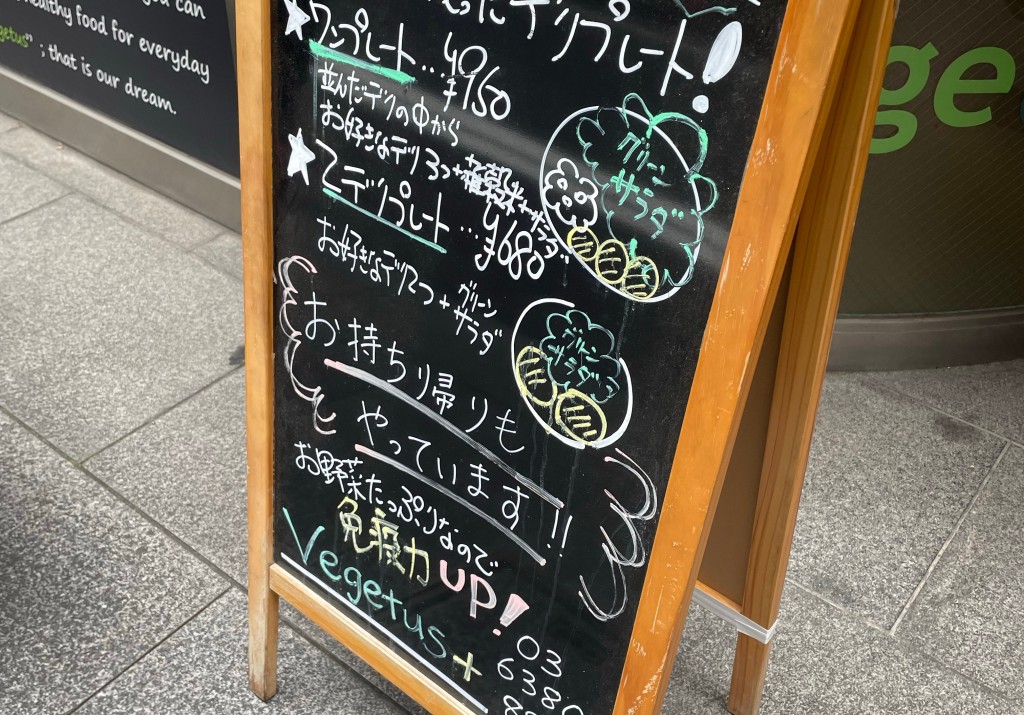 you can
healthy food for everyday
getus" ; that is our dream.
ったデリプレート!
ワンプレート…¥950
並んだデリの中から
お好きなデリ3つ+雑穀米+サラダ
2デリプレート…¥680
お好きなデリ2つ+グリーン
サラダ
グリーン
サラダ
グリーン
サラダ
お持ち帰りも
やっています!!
お野菜たっぷりなので
免疫力UP!
Vegetus+
03
6380
ge